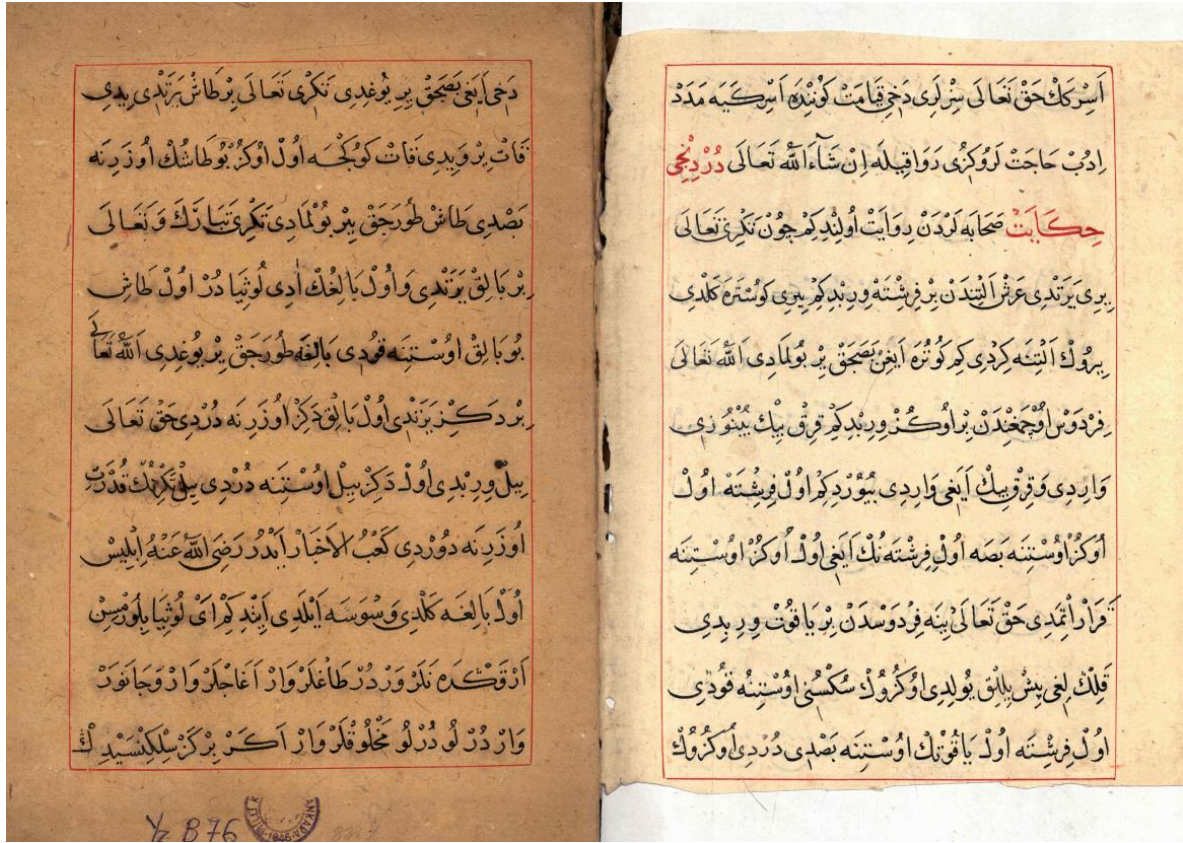 اَسِرْكَكْ حَقْ تَعَالَى سِزْلَرِى دَخِى قِيَامَتْ كُونِنْدَه اَسِرْكَيَه مَدَدْ
اِدُبْ حَاجَتْ لَرُوكُزِى رَوَا قِيلَه اِنْ شَآءَ اللّٰه تَعَالَى دُرْدِنْجِى
حِكَايَتْ صَحَابَه لَرْدَنْ رِوَايَتْ اُولِنْدِكِمْ چُونْ تَكْرِى تَعَالَى
يِرِى يَرَتْدِى عَرْشْ اَلْتِنْدَنْ بِرْ فِرِشْتَه وِرِبْدِكِمْ يِرِى كُوتُرَه كَلْدِى
يِرُوكْ اَلْتِنَه كِرْدِى كِمْ كُوتُرَه اَيَغِنْ بَصَجَقْ يِرْ بُولَمَادِى اَللّٰه تَعَالَى
فِرْدَوْسْ اُوچْمَغِنْدَنْ بِرْ اُوكُزْ وِرِبْدِكِمْ قِرِقْ بِيكْ بُينُوزِى
وَارِدِى وَ قِرِقْ بِيكْ اَيَغِى وَارِدِى بُيُورْدِكِمْ اُولْ فِرِشْتَه اُولْ
اُوكُزْ اُوسْتِنَه بَصَه اُولْ فِرِشْتَه نُكْ اَيَغِى اُولْ اُوكُزْ اُوسْتِنَه
قَرَارْ اَتْمَدِى حَقْ تَعَالَى يِنَه فِرْدَوْسدَنْ بِرْ يَاقُوتْ وِرِبِدِى
قَلِكْ لِغِى بِيشْ يِللِقْ يُولِدِى اُوكُزُوكْ سُكْسُنِى اُوسْتِنُه قُودِى
اُولْ فِرِشْتَه اُولْ يَاقُوتُكْ اُوسْتِنَه بَصْدِى دُرْدِى اُوكُزُوكْ
دَخِى اَيَغِى بَصَجَقْ يِرِ يُوغِدِى تَكْرِى تَعَالَى بِرْ طَاشْ يَرَتْدِى يِدِى
قَاتْ يِرْ وَ يِدِى قَاتْ كُوكْجَه اُولْ اُوكُزْ بُو طَاشُكْ اُوزَرِنَه
بَصْدِى طَاشْ طُورَجَقْ يِيرْ بُولْمَادِى تَكْرِى تَبَارَكَ وَ تَعَالَى
بِرْ بَالِقْ يَرَتْدِى وَ اُولْ بَالِغُكْ اَدِى لُوثِيَا دُرْ اُولْ طَاشِ
بُو بَالِقْ اُوسْتِنَه قُودِى بَالِغَه طُورَجَقْ يِرْ يُوغِدِى اَللّٰه تَعَالَى
بِرْ دَكِزْ يَرَتْدِى اُولْ بَالِقْ دَكِزْ اُوزَرِنَه دُرْدِى حَقْ تَعَالَى
يِيلْ وِرِبْدِى اُولْ دَكِزْ يِيلْ اُوسْتِنَه دُرْدِى يِيلْ تَكْرِنُكْ قُدْرَتِ
اُوزَرِنَه دُورْدِى كَعْبُ الاَخْبَارْ اَيْدُرْ رَضِىَ اللّٰهُ عَنْهُ اِبْلِيسْ
اُولْ بَالِغَه كَلْدِى وَسْوَسَه اَيْلَدِى اَيِتْدِكِمْ اَىْ لُوثِيَا بِلُورْمِسِنْ
اَرْقَكْدَه نَلَرْ وَرْدُرْ طَاغْلَرْ وَارْ اَغَاجْلَرْ وَارْ وَ جَانَوَرْ
وَارْ دُرْلُو دُرْلُو مَخْلُوقْلَرْ وَارْ اَكَرْ بِرْ كَزْ سِلْكِنْسَيْدِكْ
Yz B 76
ANKARA
1946